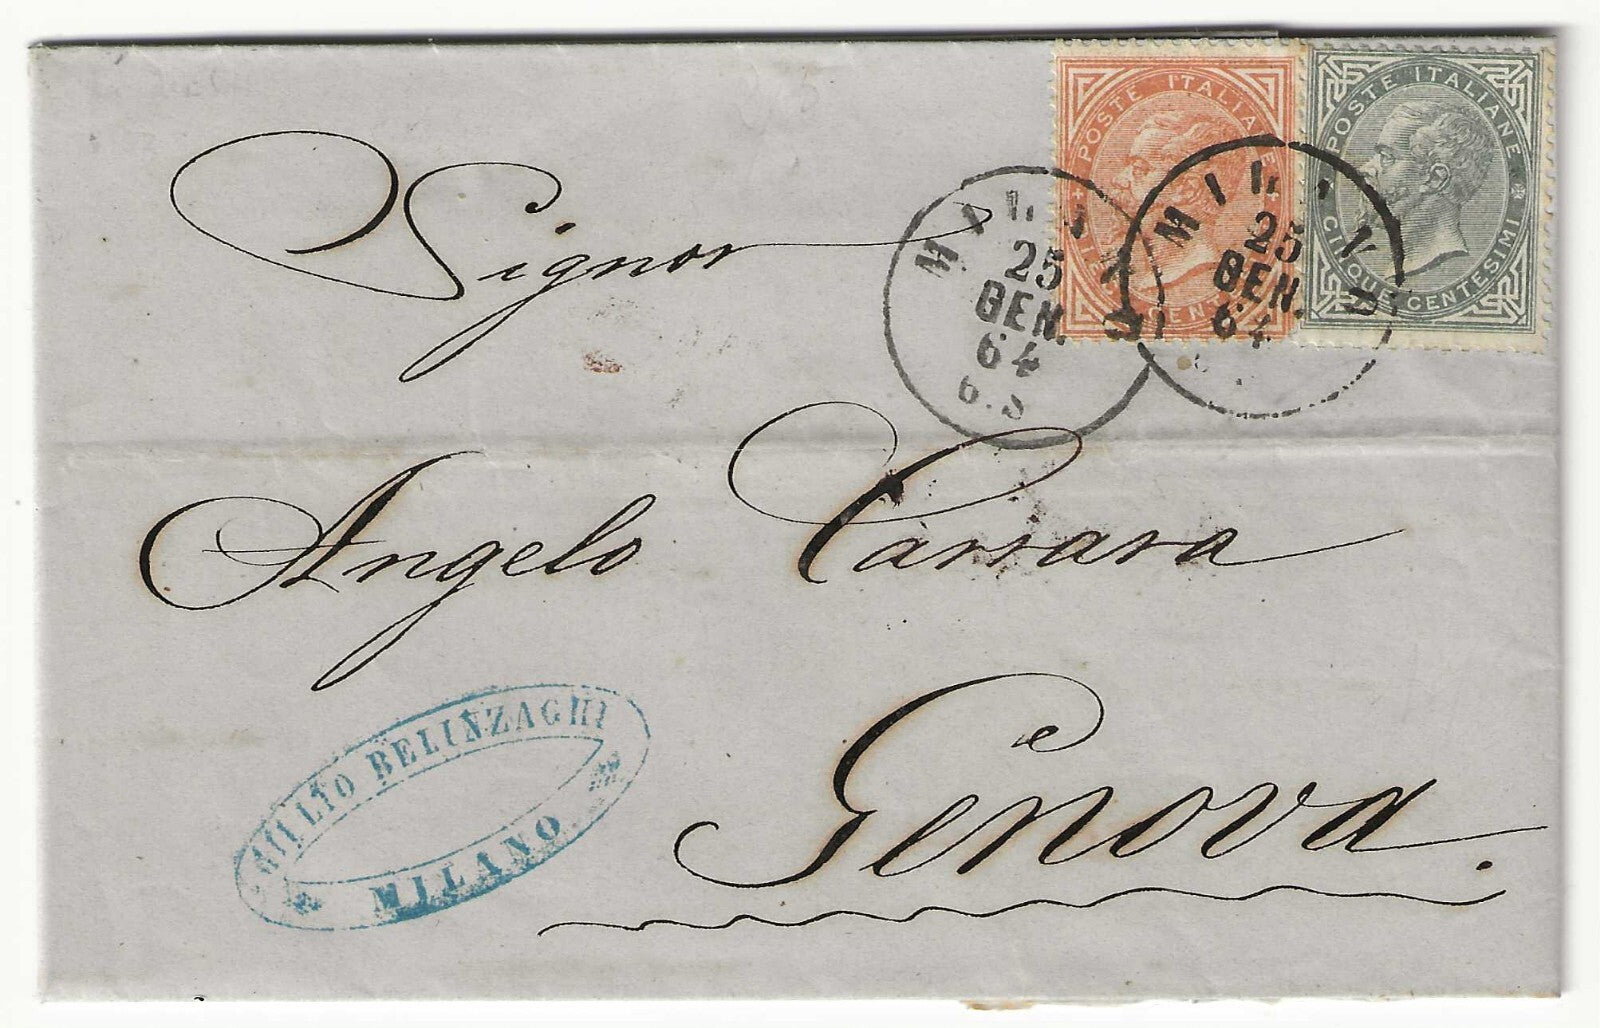 POSTE ITALIANE
CENT
POSTE ITALIANE
CINQUE CENTESIMI
MILANO
25
GEN.
64
6.S
MILANO
25
GEN.
64
Signor
Angelo Carrara
Genova.
GIULIO BELINZAGHI
MILANO